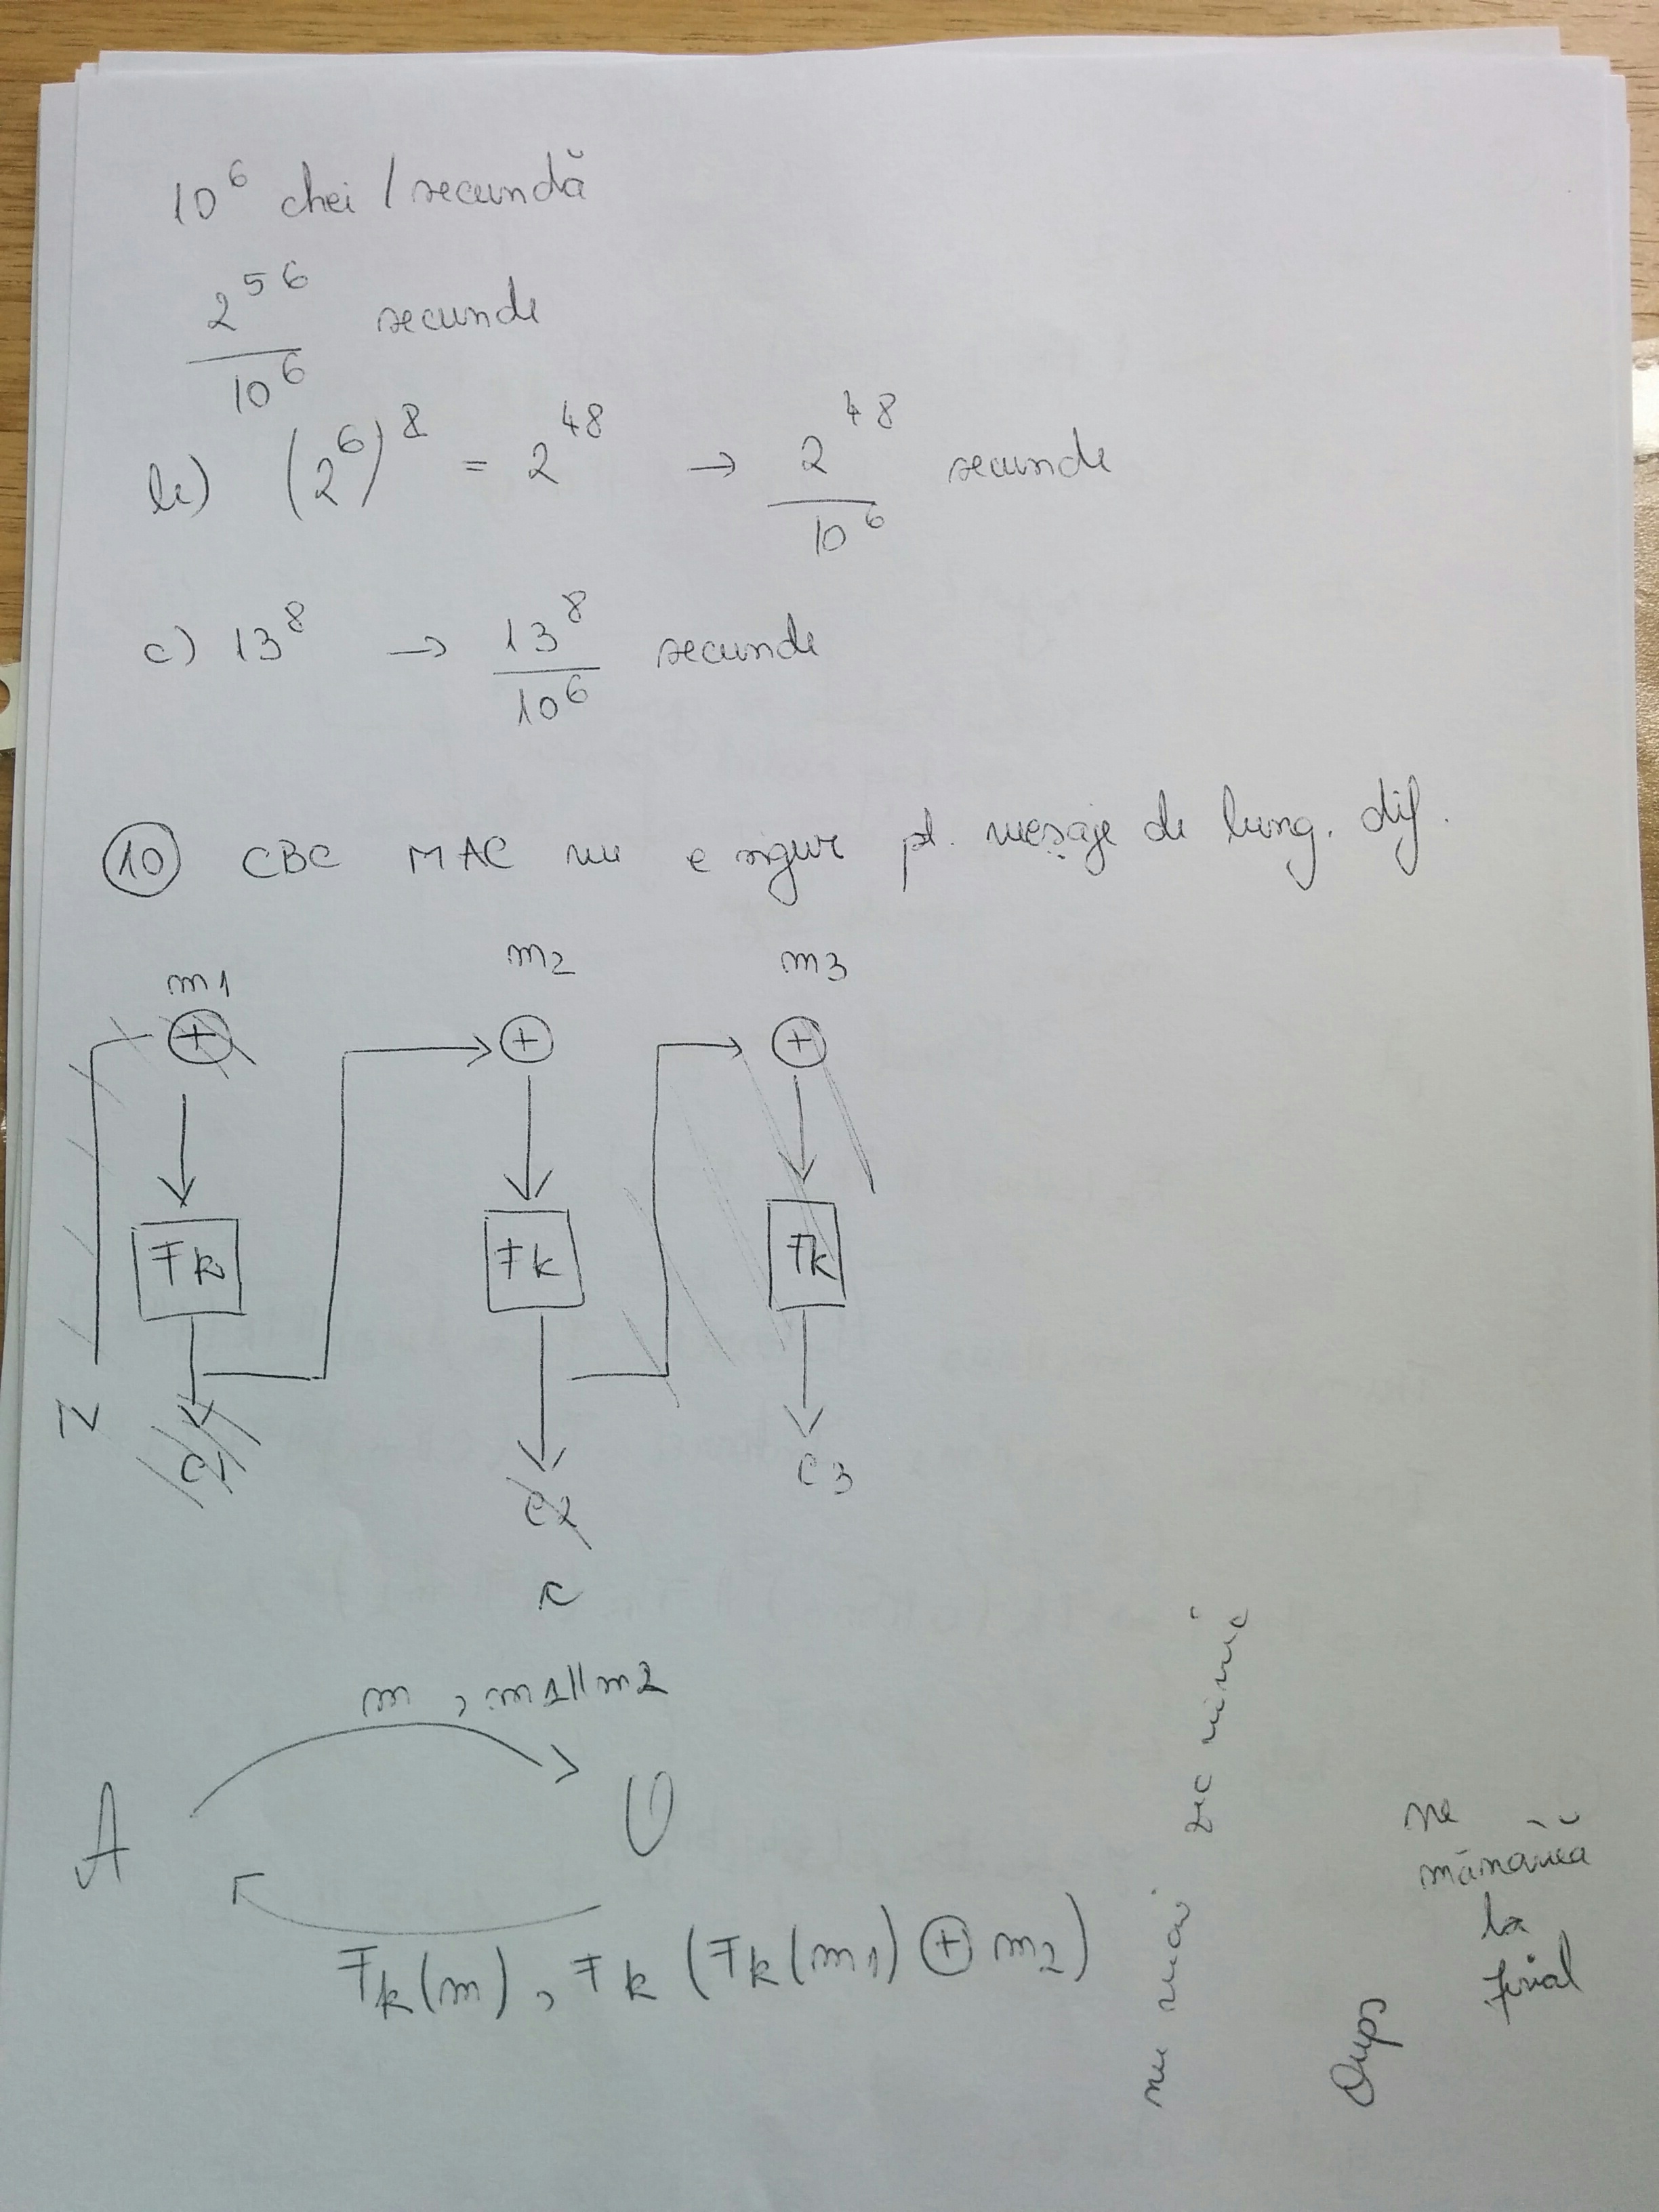 10^6 chei / secundă
2^56 / 10^6 secunde
b) (2^6)^8 = 2^48 → 2^48 / 10^6 secunde
c) 13^8 → 13^8 / 10^6 secunde
(10) CBC MAC nu e sigur pt. mesaje de lung. dif.
m1 m2 m3
⊕ ⊕ ⊕
Fk Fk Fk
c1 c2 c3
m , m1||m2
A O
Fk(m), Fk(Fk(m1) ⊕ m2)
nu mai zic nimic
Oups
ne
mănâncă
la
final